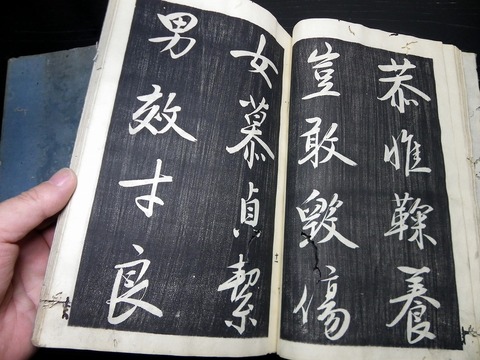 恭惟鞠養
豈敢毀傷
女慕貞絜
男效才良